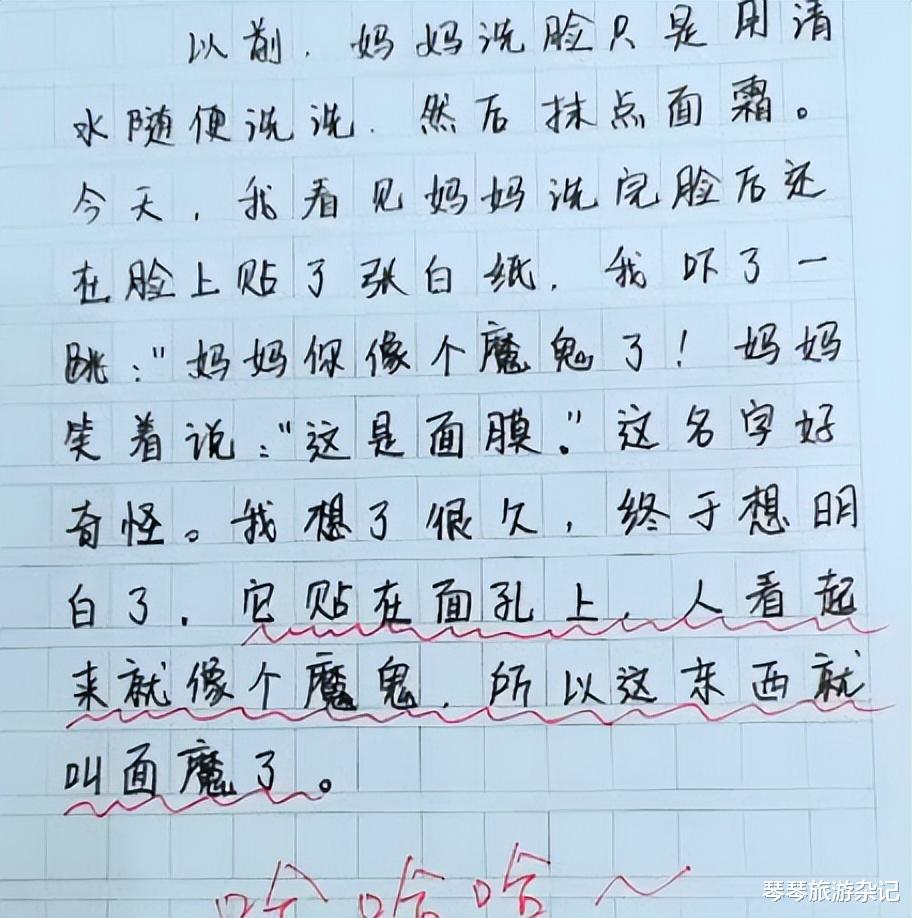 以前，妈妈洗脸只是用清
水随便洗洗．然后抹点面霜。
今天，我看见妈妈洗完脸后还
在脸上贴了张白纸，我吓了一
跳："妈妈你像个魔鬼了！妈妈
笑着说："这是面膜。"这名字好
奇怪。我想了很久，终于想明
白了，它贴在面孔上，人看起
来就像个魔鬼，所以这东西就
叫面魔了。
哈哈哈～
琴琴旅游杂记